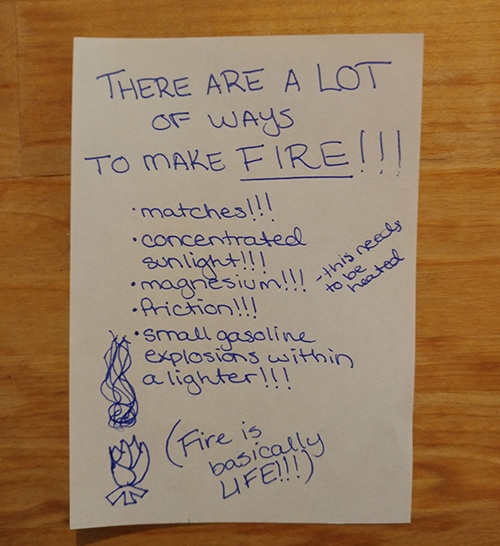 THERE ARE A LOT
OF WAYS
TO MAKE FIRE!!!
· matches!!!
· concentrated
sunlight!!!
· magnesium!!! - this needs
to be
heated
· friction!!!
· small gasoline
explosions within
a lighter!!!
(Fire is
basically
LIFE!!!)